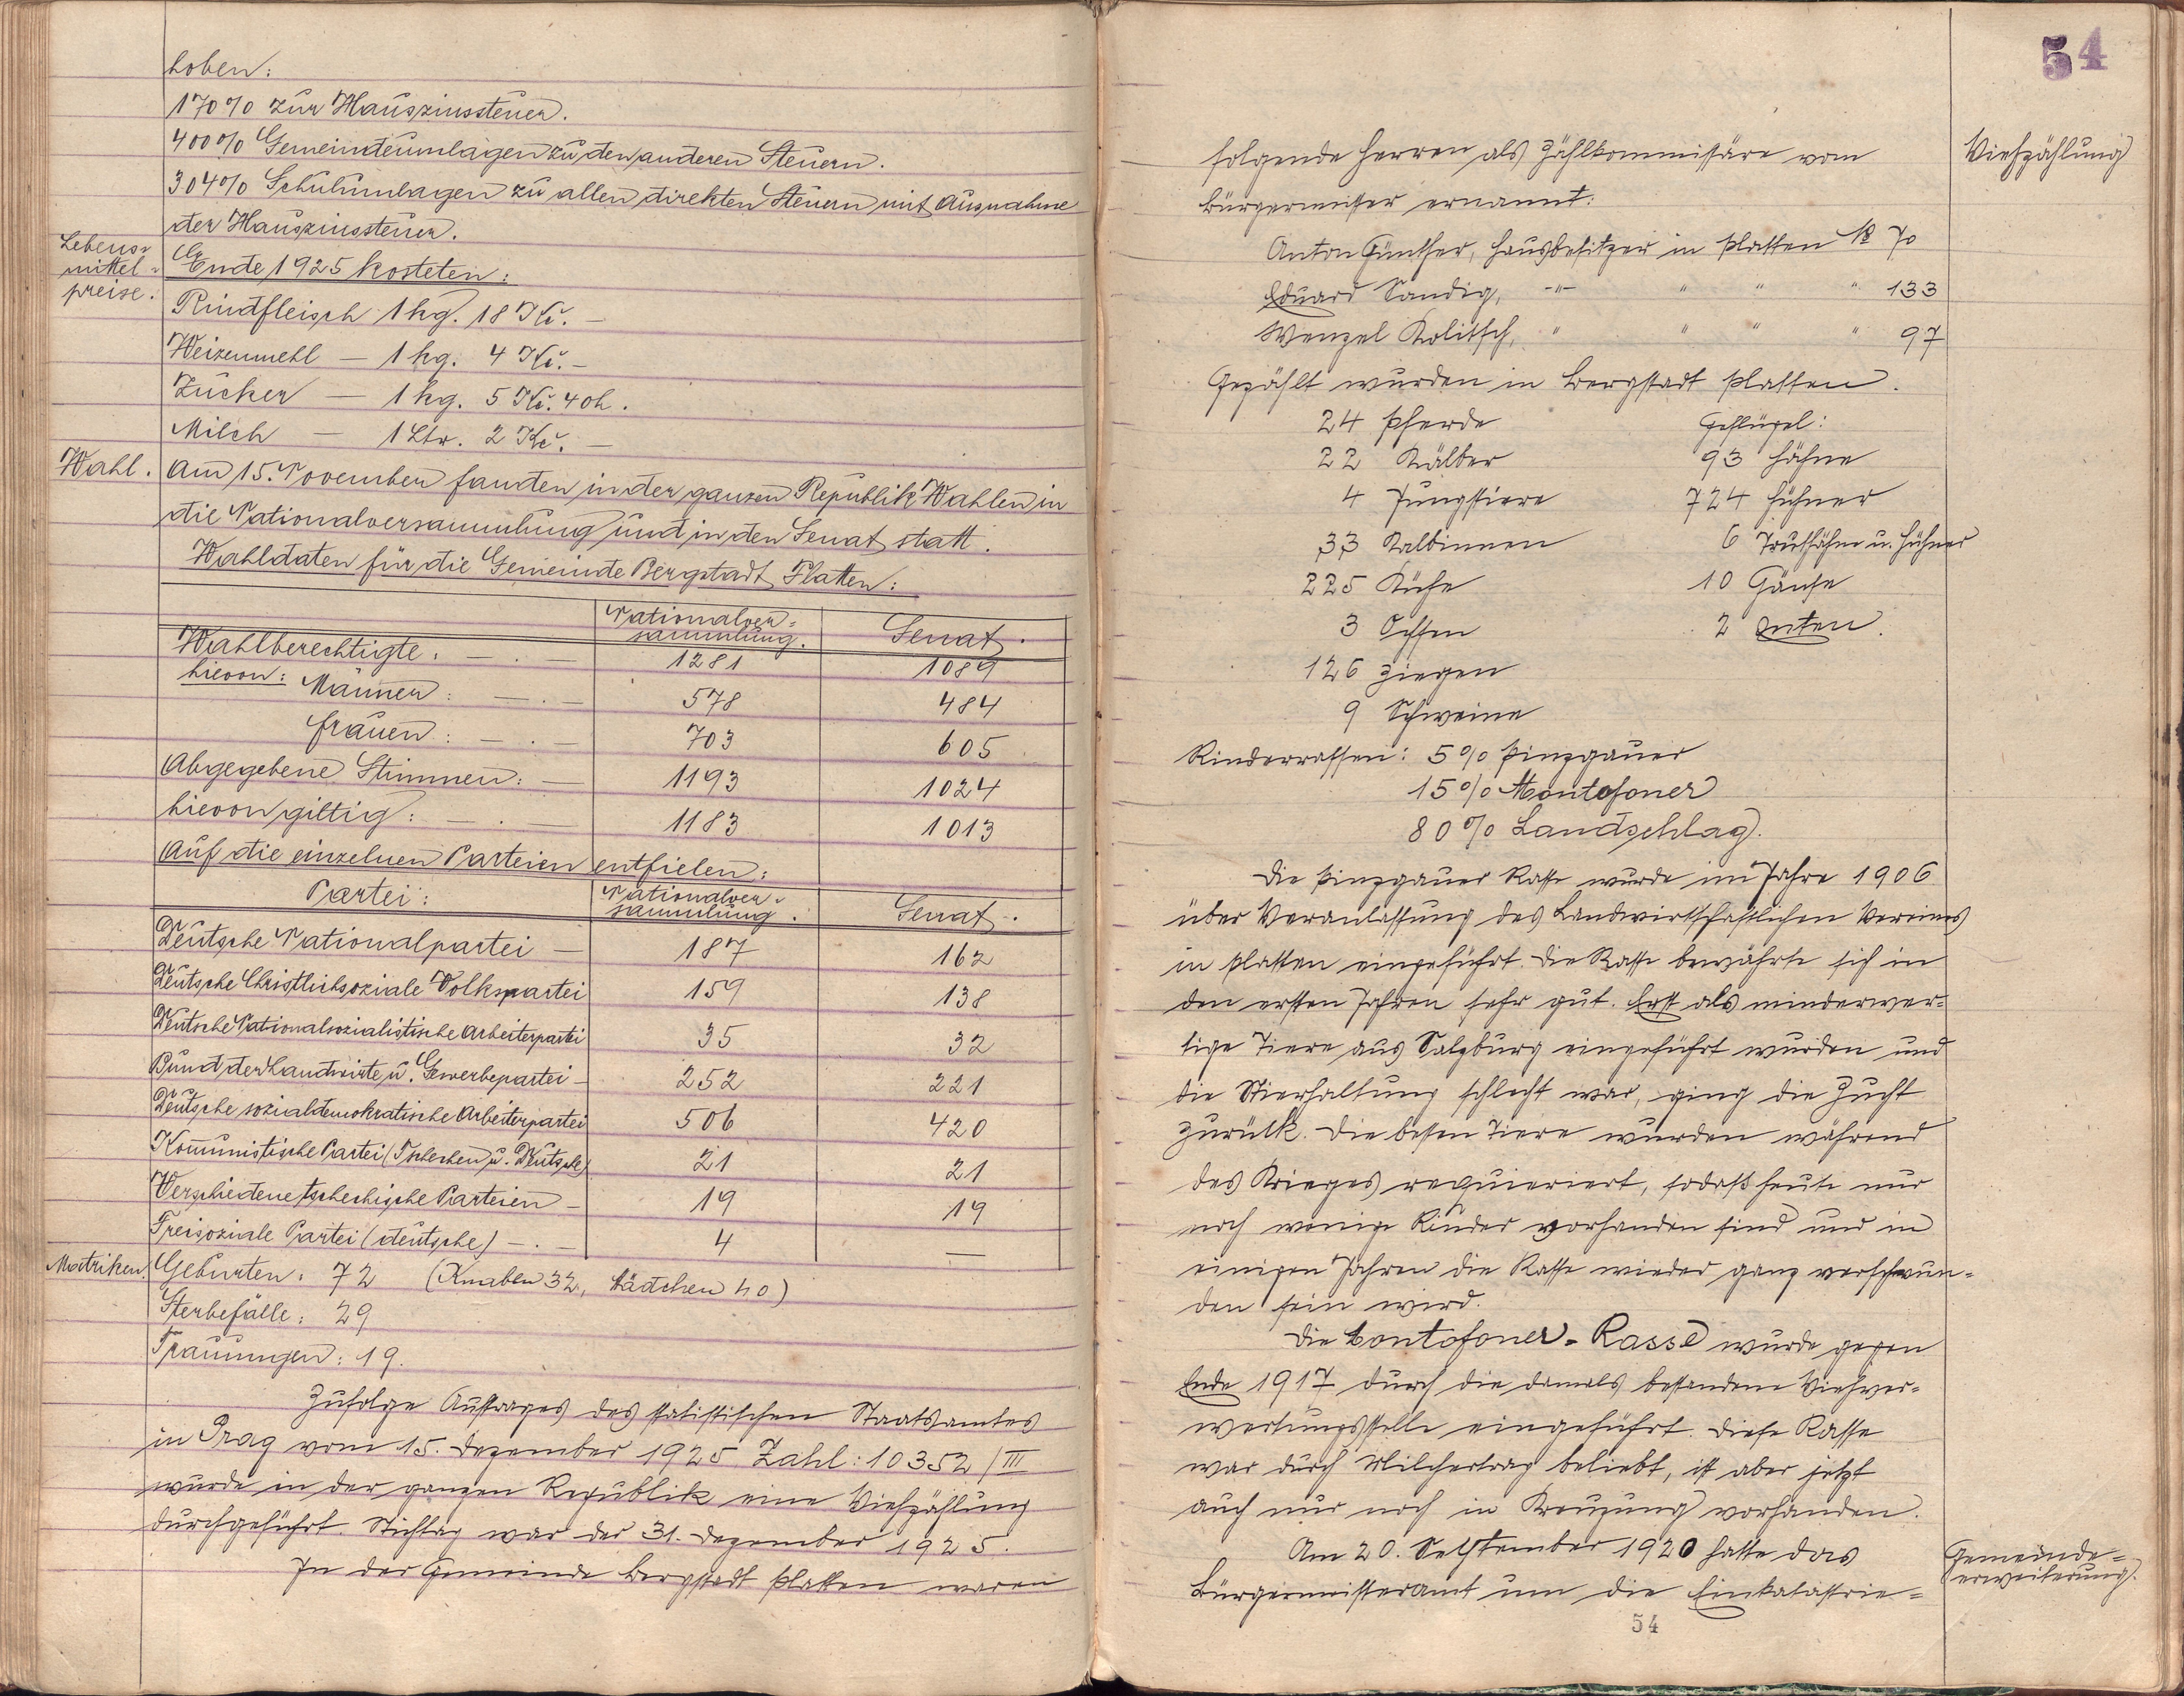 hoben:
170% zur Hauszinssteuer.
400% Gemeindeumlagen zu den anderen Steuern.
304% Schulumlagen zu allen direkten Steuern mit Ausnahme
der Hauszinssteuer.
Lebens-
mittel-
preise.
Ende 1925 kosteten:
Rindfleisch 1 kg. 18 Kč. —
Weizenmehl — 1 kg. 4 Kč. —
Zucker — 1 kg. 5 Kč. 40 h.
Milch — 1 Ltr. 2 Kč. —
Wahl.
Am 15. November fanden in der ganzen Republik Wahlen in
die Nationalversammlung und in den Senat statt.
Wahldaten für die Gemeinde Bergstadt Platten:
Nationalver-
sammlung. Senat.
Wahlberechtigte: — . — 1281 1089
hievon: Männer: — . — 578 484
Frauen: — . — 703 605
Abgegebene Stimmen: — 1193 1024
hievon giltig: — . — 1183 1013
Auf die einzelnen Parteien entfielen:
Partei: Nationalver-
sammlung. Senat.
Deutsche Nationalpartei — 187 162
Deutsche Christlichsoziale Volkspartei 159 138
Deutsche Nationalsozialistische Arbeiterpartei 35 32
Bund der Landwirte u. Gewerbepartei — 252 221
Deutsche sozialdemokratische Arbeiterpartei 506 420
Kommunistische Partei (Tschechen u. Deutsche) 21 21
Verschiedene tschechische Parteien — 19 19
Freisoziale Partei (deutsche) — . — 4 —
Matriken.
Geburten: 72 (Knaben 32, Mädchen 40)
Sterbefälle: 29
Trauungen: 19.
Zufolge Auftrages des statistischen Staatsamtes
in Prag vom 15. Dezember 1925 Zahl: 10352/III
wurde in der ganzen Republik eine Viehzählung
durchgeführt. Stichtag war der 31. Dezember 1925.
In der Gemeinde Bergstadt Platten waren
54
Viehzählung
folgende Herren als Zählkommissäre vom
Bürgermeister ernannt:
Anton Günther, Hausbesitzer in Platten № 70
Eduard Sandig, -"- " " " 133
Wenzel Kolitsch, " " " " 97
Gezählt wurden in Bergstadt Platten.
24 Pferde Geflügel:
22 Kälber 93 Hähne
4 Jungstiere 724 Hühner
33 Kalbinnen 6 Truthähne u. Hühner
225 Kühe 10 Gänse
3 Ochsen 2 Enten.
126 Ziegen
9 Schweine
Rinderrassen: 5% Pinzgauer
15% Montofoner
80% Landschlag.
Die Pinzgauer Rasse wurde im Jahre 1906
über Veranlassung des Landwirtschaftlichen Vereines
in Platten eingeführt. Die Rasse bewährte sich in
den ersten Jahren sehr gut. Erst als minderwer-
tige Tiere aus Salzburg eingeführt wurden und
die Stierhaltung schlecht war, ging die Zucht
zurück. Die besten Tiere wurden während
des Krieges requieriert, sodaß heute nur
noch wenige Rinder vorhanden sind und in
einigen Jahren die Rasse wieder ganz verschwun-
den sein wird.
Die Montofoner-Rasse wurde gegen
Ende 1917 durch die damals bestandene Viehver-
wertungsstelle eingeführt. Diese Rasse
war durch Milchertrag beliebt, ist aber jetzt
auch nur noch in Kreuzung vorhanden.
Gemeinde-
erweiterung.
Am 20. September 1920 hatte das
Bürgermeisteramt um die Einkatastrie-
54